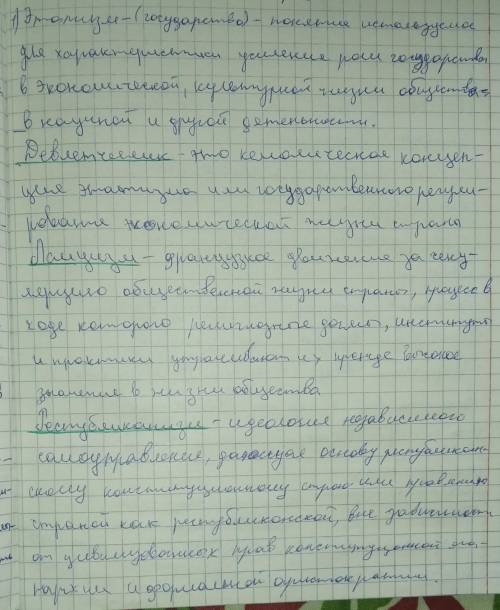 1) Этатизм - (государство) - понятие используемое
для характеристики усиления роли государства
в экономической, культурной жизни общества
в научной и другой детельности.
Девлетчелик - это кемалическая концеп-
ция этатизма или государственного регули-
рования экономической жизни страны
Лаицизм - французкое движение за секу-
ляризацию общественной жизни страны, процесс в
ходе которого религиозные догмы, институты
и практики утрачивают их прежде высокое
значение в жизни общества.
Республиканизм - идеология независимого
самоуправления, дающая основу республикан-
скому конституционному строю или правлению
страной как республиканской, вне зависимости
от цивилизованных прав конституционной мо-
нархии и формальной аристократии.